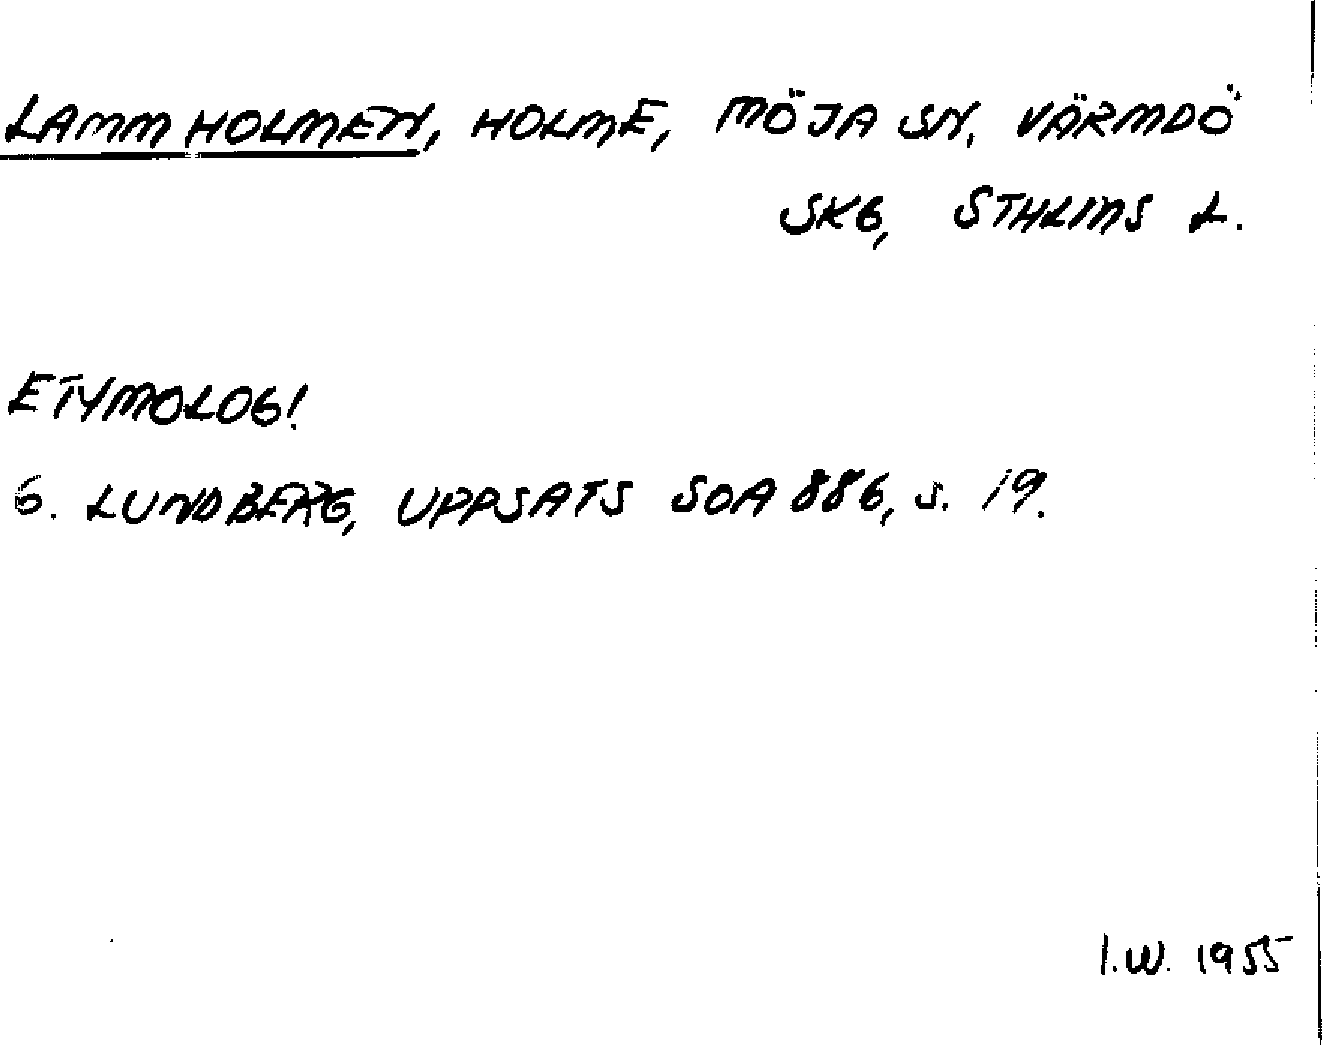 LAMMHOLMEN, HOLME, MÖJA SN, VÄRMDÖ
SKG, STHLMS L.
ETYMOLOGI
G. LUNDBERG, UPPSATS SOA 886, s. 19.
I.W. 1955